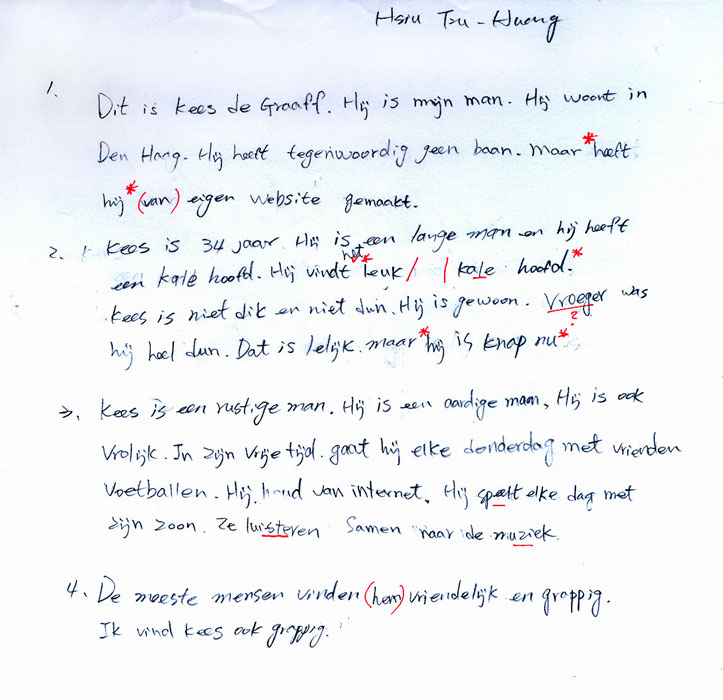 Hsiu Tzu-Huang
1.
Dit is Kees de Graaff. Hij is mijn man. Hij woont in
Den Haag. Hij heeft tegenwoordig geen baan. Maar * heeft
hij * (van) eigen website gemaakt.
2. Kees is 34 jaar. Hij is een lange man en hij heeft
het
een kale hoofd. Hij vindt * leuk / | kale hoofd. *
Kees is niet dik en niet dun. Hij is gewoon. Vroeger was
?
hij heel dun. Dat is lelijk. maar * hij is knap nu *
3. Kees is een rustige man. Hij is een aardige man, Hij is ook
Vrolijk. In zijn vrije tijd. gaat hij elke donderdag met vrienden
Voetballen. Hij houd van internet. Hij speelt elke dag met
zijn zoon. Ze luisteren Samen naar de muziek.
4. De meeste mensen vinden (hem) vriendelijk en grappig.
Ik vind Kees ook grappig.